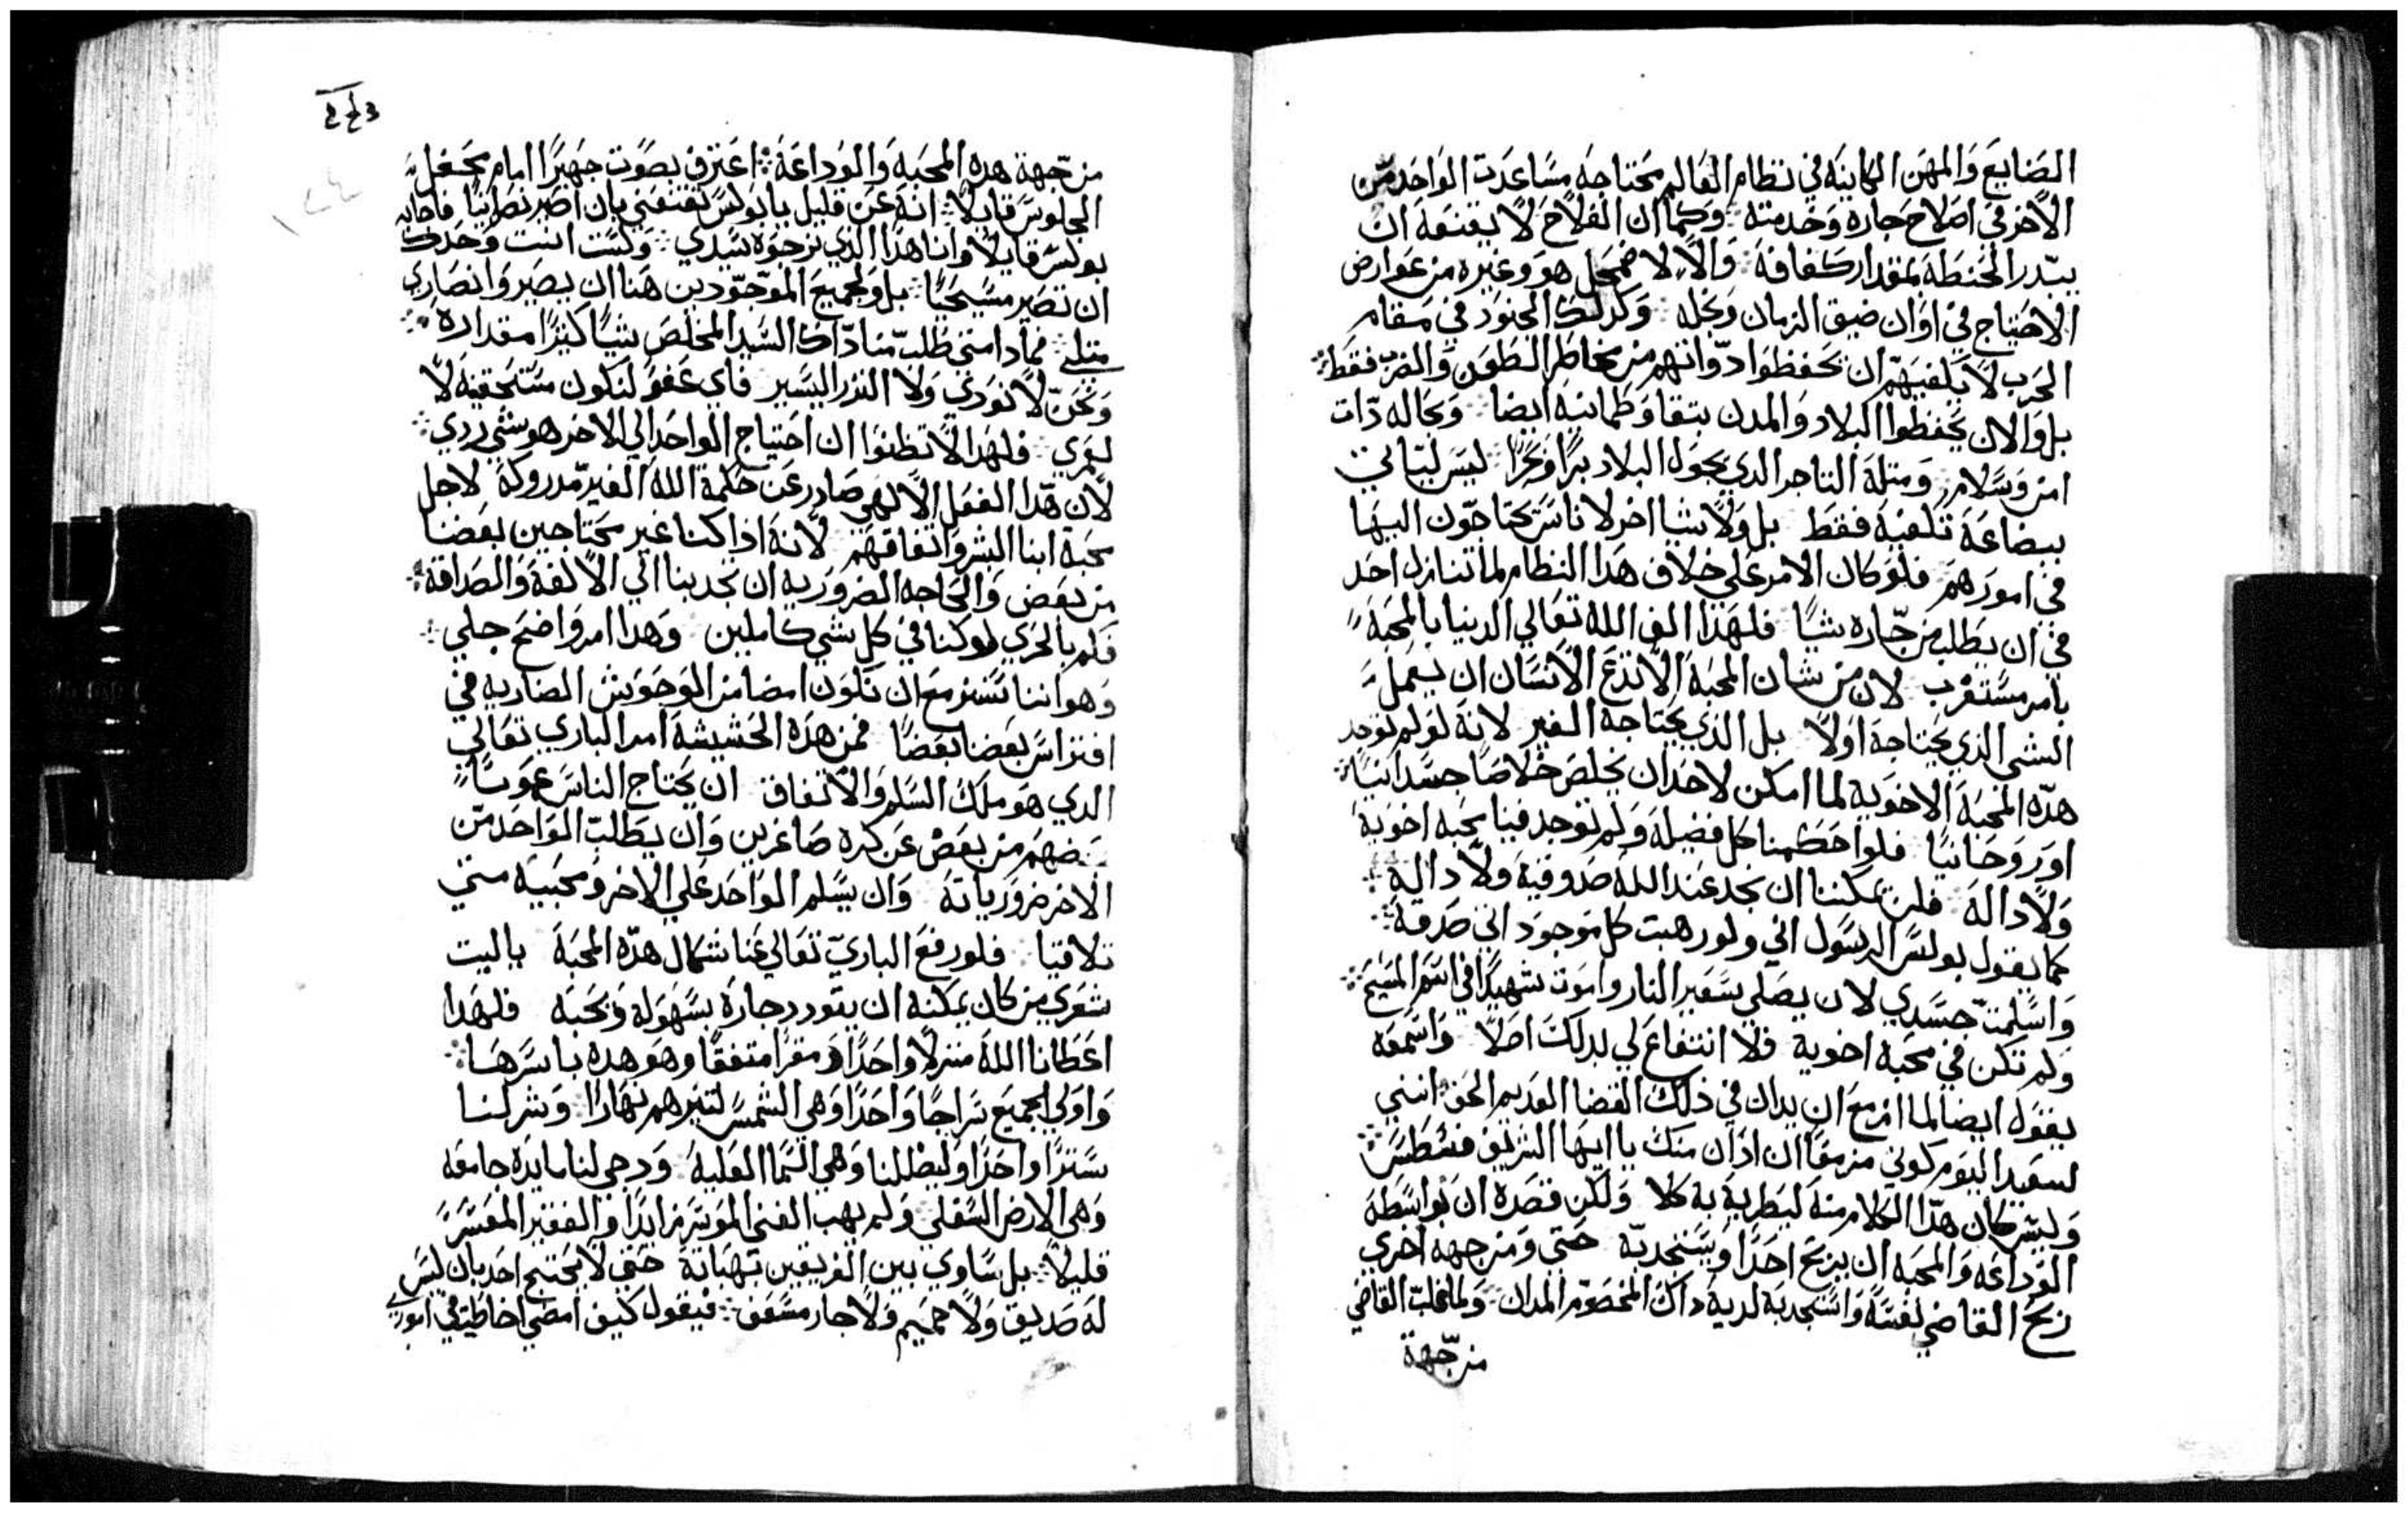 الصَنايعَ وَالمهَن الكاينَه في نظام العَالم محتَاجهَ مسَاعَدت الوَاحَد مّن
الاخر في اصلاحَ جاره وَخدمته وَكما ان الفلاحَ لا يقنعَه ان
يبّدر الحَنطةَ بمقدار كفافهَ وَالا لاضمحَل هوَ وغيره من عَوارض
الاحتياج في اوَان ضيق الزمان وَمحَله وَكدلك الجنوَد في مَقام
الحَرب لا يَكفيهَم ان يحَفظوَا دّواتهم من مخاطر الطعَن وَالضربَ فقط
بل وَالان يحَفظوا البلاد وَالمدن بتقا وَطمانينه ايضا وَبحَاله دّات
امن وَسَلام وَمتلهَ التاجر الدي يجَول البلاد برًا وَبحَرًا ليسَ ليَاتي
ببضاعَة تكفيهَ فقط بل وَلاشيا اخر لاناسَ يحَتاجوّن اليهَا
في امورَهم فلوَ كان الامر عَلى خلاف هَدا النظام لما تنازل احَد
في ان يَطلب من جّاره شيًا فلهَذا الف اللهَ تعَالي الدنيا بالمحَبة
بامر مسَتغرب لان من شان المحَبةَ الا تدَعَ الانسَان ان يعَمل
الشي الدي يحَتاجهَ اوَلاً بل الدي يحَتاجهَ الغير لانهَ لوَ لم توَجد
هدّه المحَبةَ الاخوَيه لما امكن لاحَد ان يخَلصَ خلاصًا جسَدانيًا
اوَروَحَانيًا فلوا حَكمنا كل فضيلهَ وَلم توَجد فينا محَبه اخوَية
وَلا دالهَ فلن يمَكننا ان نجَد عَند اللهَ صَدوقيهَ وَلا دالهَ
كما يقوَل بولسَ الرسَول اني ولو رهبت كل موَجوَد اني صَدقهَ
وَاسَلمتّ جسَدي لان يصَلي بسَعَير النار واموَت شهَيدًا في اسَم المسَيح
وَلم تكن في محَبةَ اخويه فلا انتفاعَ لي بدلكَ اصَلاً وَاسَمعَه
يقوَل ايضا لما ازمعَ ان يدان في ذلكَ القضا القديم الحَق انني
لسعَيد اليوَم كوني مزمعًَا ان ادان منكَ يا ايهَا الشريفَ فسَطسَ
وَليسَ كان هدّا الكلام منهَ ليَطريهَ به كلا وَلكن قصَدهَ ان بواسَطة
الوَداعَه وَالمحَبه ان يربحَ احَدًا وَيسَتنجدبّه حَتي وَمن جهه اخري
ربحَ القاضي نفسَهَ وَاسَتنجَدبَه لديهَ دَاكَ المخصوَم المدان وَلما غلبّ القاضي
من جّهة
من جّهة هدهَ المحَبهَ وَالوَداعَة اعَترف بصَوَت جهَيرًا امام محَفل
الجلوسَ قايلاً انهَ عَن قليل يا بوَلسَ تقنعَني بان اصَير نصَرانيًا فاجابه
بولسَ قايلاً وانا هدا الدي نرجوَه سَيدي وَلسَت انتَ وَحَدكَ
ان تصَير مسَيحَيًا بل وَلجميعَ الموَجوّدين هَنا ان يصَيروَا نصَاري
متلي فمادا متي طلبّ منا دّاك السَيد المخلصَ شيًا كتيرًا مقدارهَ
وَنحَنّ لا نوَدي وَلا النزر اليسَير فاي عَفوَ لنكوَن مسَتحَقينه لا
لعَمري فلهَدا لا تظنوَا ان احَتياج الوَاحَد الي الاخر هو شي ردي
لان هَدّا الفعَل الالهَي صَادر عَن حَكمةَ اللهَ الغير مدّروكةَ لاجل
محَبة ابنا البشر وَاتفاقهَم لانهَ ادا كنا غير محَتاجين بعَضنا
من بعَض وَالحَاجه الضروَريه ان تجَدبنا الي الالفةَ وَالصَداقة
فكم بالحَري لوَ كنا في كل شي كاملين وَهَدا امر وَاضحَ جلي
وَهو اننا نسَتزمعَ ان نكوَن امضا من الوَحَوَش الضاريه في
افتراسَ بعَضنا بعَضًا فمن هَذه الحَشيشةَ امر الباري تعَالي
الدي هَو ملكَ السَلم وَالاتفاق ان يحَتاج الناسَ عَموَمًا
بعَضهَم من بعَضَ عَن كره صَاغرين وَان يَطلبّ الوَاحَد مّن
الاخر ضروَرياتهَ وَان يسَلم الوَاحَد عَلي الاخر وَمحَييه متي
تلاقيا فلو رفعَ الباريّ تعَالي عَنا شمَال هدّه المحَبةَ ياليت
شعَري من كان يمكَنه ان يتوَدد جارهَ بسَهَولهَ وَمحَبه فلهَدا
اعَطانا اللهَ منزلاً وَاحَدًا وَمقرًا متفقًا وهَوَ هده باسَرهَا
وَاوَلي الجميعَ سَراجًا وَاحَدًا وَهَي الشمسَ لتنيرهم نهَارًا وَنشر لنا
سَترًا وَاحَدًا وَليظللنا وَهَي السَما العَليهَ وَدحي لنا مايدَة جامعَه
وَهَي الارض السَفلي وَلم يهَب الغني الموَسَر زايدًا وَالفقير المعَسَر
قليلاً بل سَاوي بين الفريقين بهَباتهَ حَتي لا يحَتج احَد بان ليسَ
لهَ صَديق وَلا حمَيم وَلا جار مسَعَف فيقول كيف امضي اخاطب في اموَري